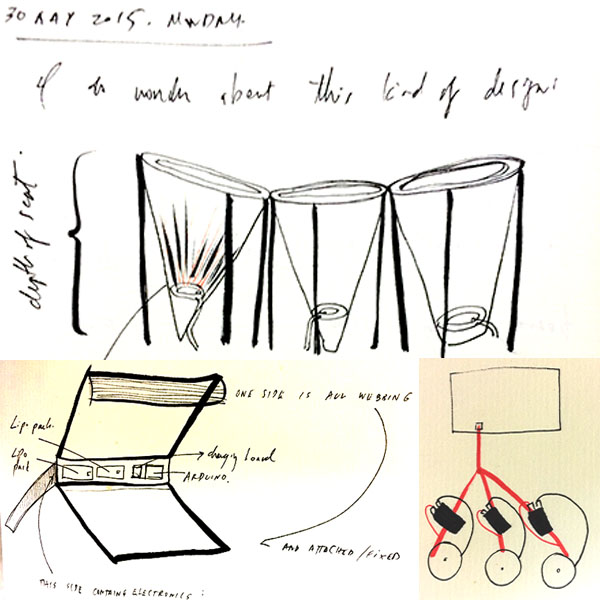 30 MAY 2015. MONDAY.
I do wonder about this kind of design:
depth of seat.
ONE SIDE IS ALL WEBBING
Lipo pack.
charging board
LPO
pack
ARDUINO.
AND ATTACHED / FIXED
THIS SIDE CONTAINS ELECTRONICS: